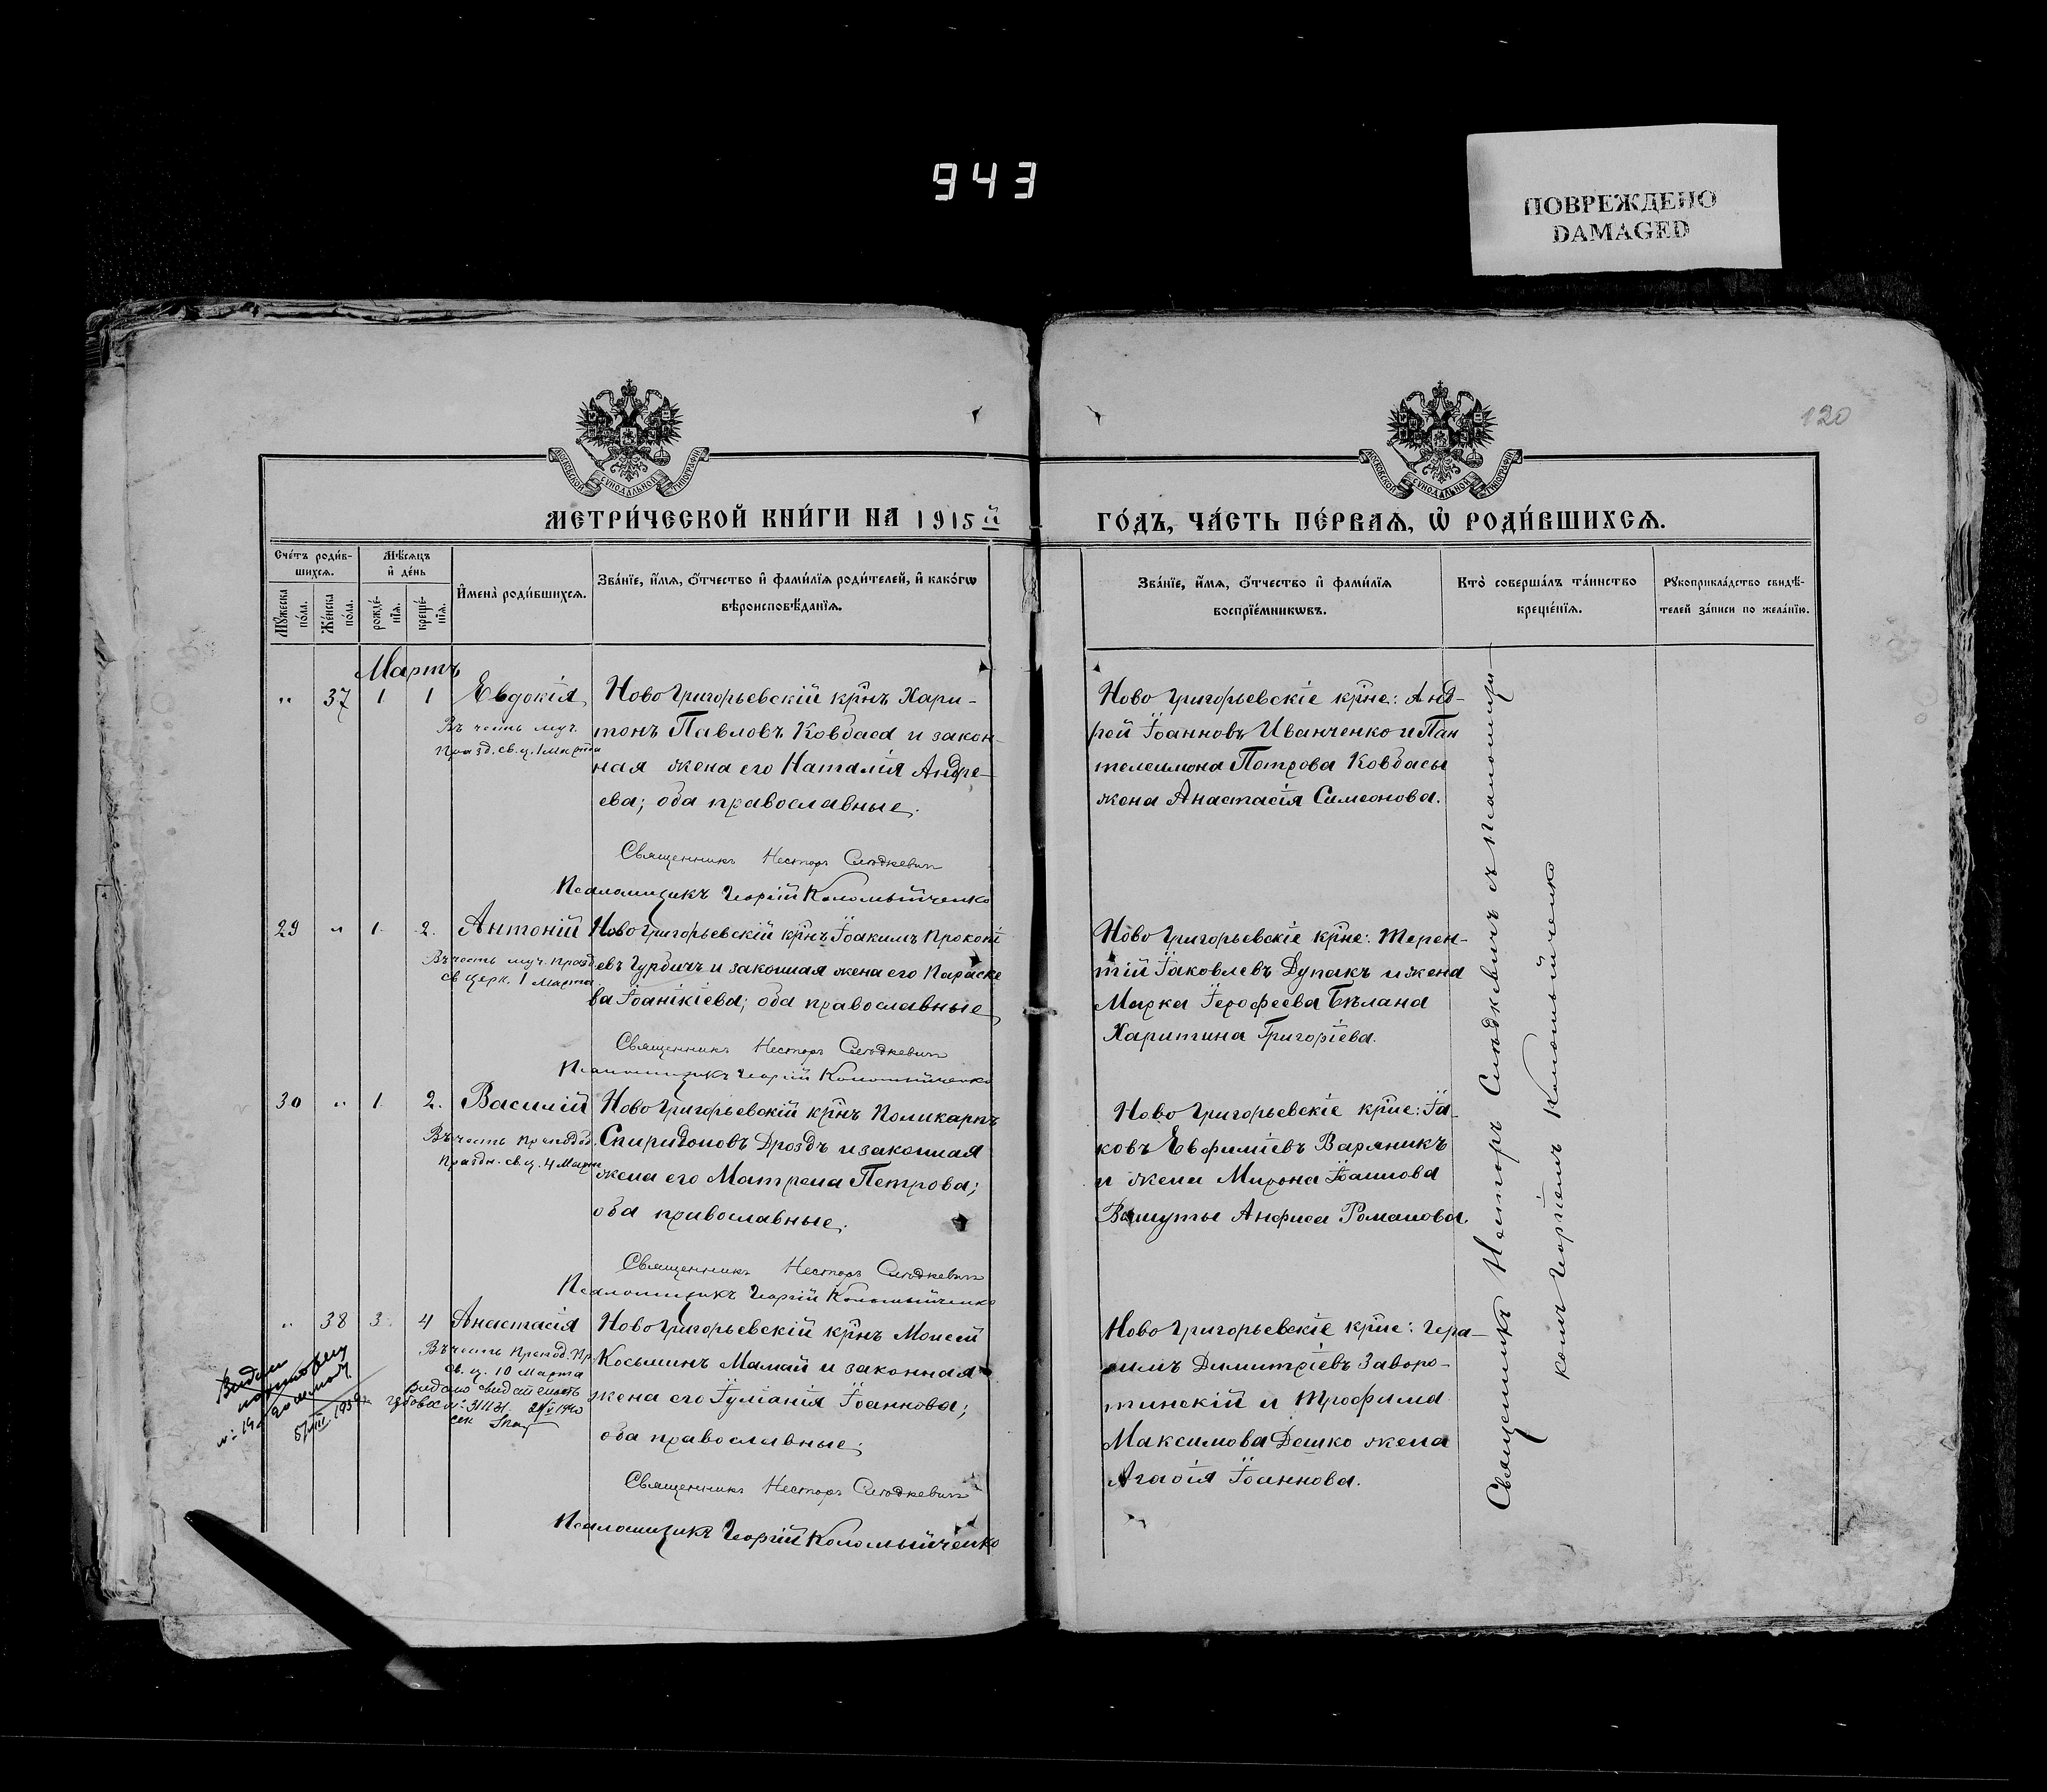 943
ПОВРЕЖДЕНО
DAMAGED
120
МОСКОВСКОЙ СѴНОДАЛЬНОЙ ТИПОГРАФІИ
МОСКОВСКОЙ СѴНОДАЛЬНОЙ ТИПОГРАФІИ
МЕТРИ́ЧЕСКОЙ КНИ́ГИ НА 1915 й
ГО́ДЪ, ЧА́СТЬ ПЕ́РВАѦ, Ѡ҆ РОДИ́ВШИХСѦ.
Сче́тъ роди́в-
шихсѧ.
Мѣ́сѧцъ
и҆ де́нь
Мꙋ́жеска
по́ла.
Же́нска
по́ла.
рожде́-
нїѧ.
креще́-
нїѧ.
И҆мена̀ роди́вшихсѧ.
Зва́нїе, и҆́мѧ, ѻ҆́тчество и҆ фами́лїѧ роди́телей, и҆ како́гѡ
вѣроисповѣ́данїѧ.
Зва́нїе, и҆́мѧ, ѻ҆́тчество и҆ фами́лїѧ
воспрїе́мникѡвъ.
Кто̀ соверша́лъ та́инство
креще́нїѧ.
Рꙋкоприкла́дство свидѣ́-
телей за́писи по жела́нїю.
Мартъ
" 37 1 1 Евдокія
Въ честь муч.
празд. св. ц. 1 Марта
Ново Григорьевскій кр̃нъ Хари-
тонъ Павловъ Ковбаса и закон-
ная жена его Наталія Андре-
ева; оба православные.
Священникъ Несторъ Слюдкевич
Псаломщикъ Георгій Коломыйченко
Ново Григорьевскіе кр̃не: Анд-
рей Іоанновъ Иванченко и Пан
телеимона Петрова Ковбасы
жена Анастасія Симеонова.
29 " 1 2. Антоній
Въ честь муч. празд
св церк. 1 Марта
Ново Григорьевскій кр̃нъ Іоакимъ Прокопі
евъ Гурбичъ и законная жена его Параске
ва Іоанікіева; оба православные
Священникъ Несторъ Слюдкевич
Псаломщикъ Георгій Коломыйченко
Ново Григорьевскіе кр̃не: Терен-
тій Іаковлевъ Дупакъ и жена
Марка Іерофеева Бѣлана
Харитина Григоріева.
30 " 1 2. Василій
Въ честь преподоб.
праздн. св. ц. 4 Марта
Ново Григорьевскій кр̃нъ Поликарпъ
Спиридоновъ Дроздъ и законная
жена его Матрена Петрова;
оба православные.
Священникъ Несторъ Слюдкевич
Псаломщикъ Георгій Коломыйченко
Ново Григорьевскіе кр̃не: Іа-
ковъ Евфиміевъ Варяникъ
и жена Мирона Іоаннова
Вашуты Анфиса Романова.
" 38 3. 4 Анастасія
Въ честь Препод. Пр
св. ц. 10 Марта
Ново Григорьевскій кр̃нъ Моисей
Косьминъ Мамай и законная
жена его Іуліанія Іоаннова;
оба православные.
Священникъ Несторъ Слюдкевич
Псаломщикъ Георгій Коломыйченко
Ново Григорьевскіе кр̃не: Гера-
симъ Димитріевъ Заворо-
тинскій и Трофима
Максимова Дешко жена
Агафія Іоаннова.
Священникъ Несторъ Слюдкевичъ съ псаломщи-
комъ Георгіемъ Коломыйченко